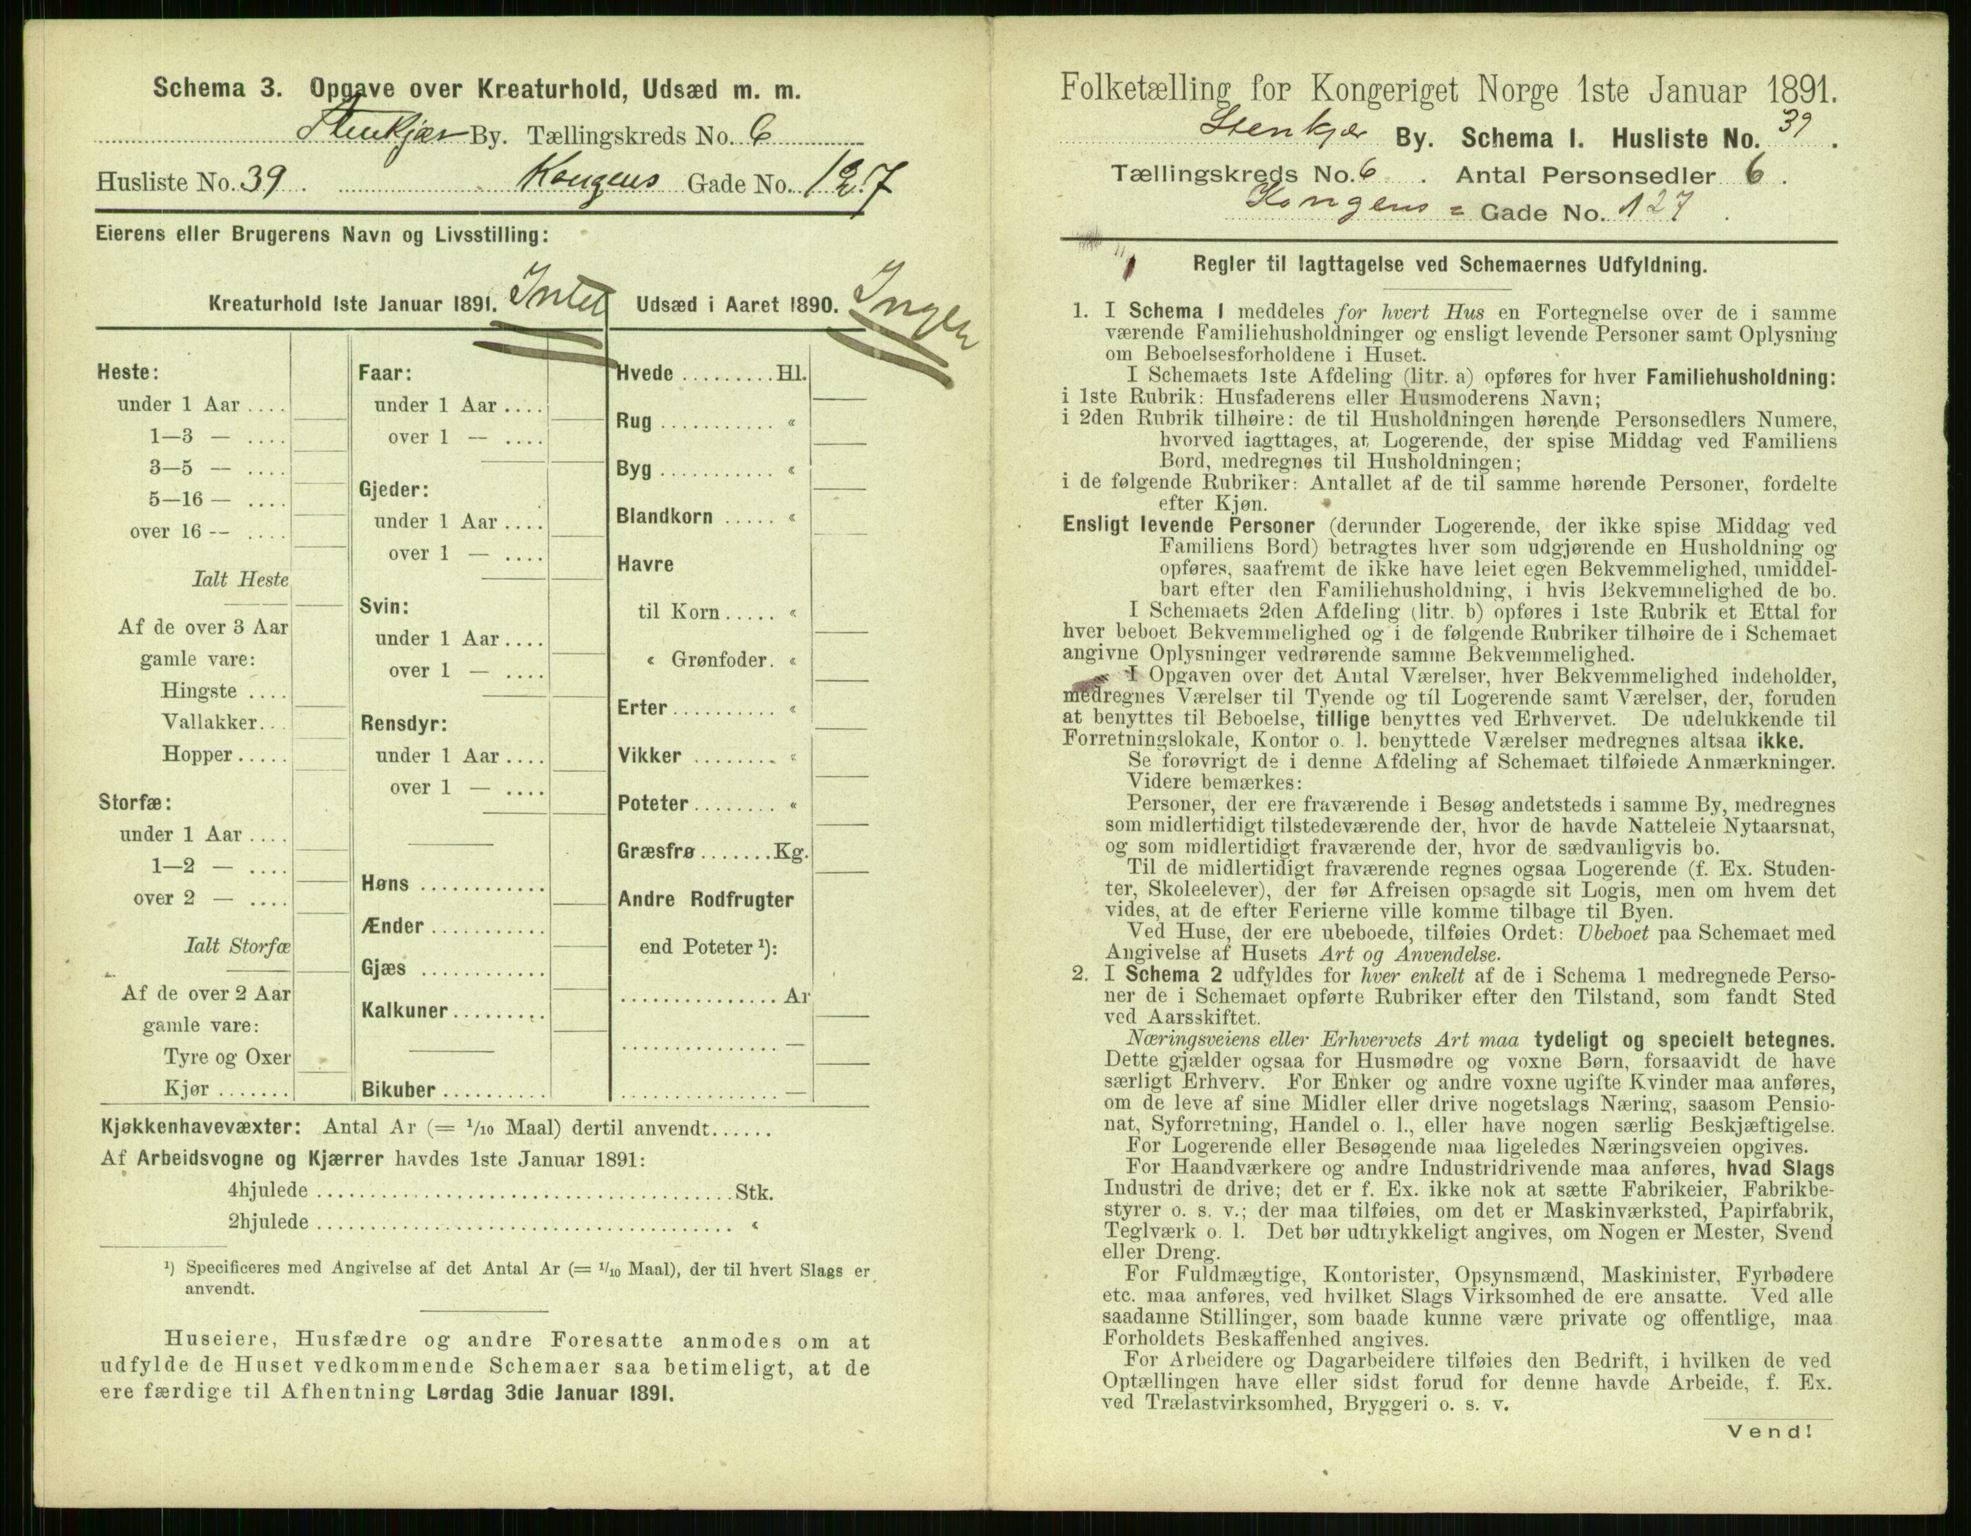 Schema 3. Opgave over Kreaturhold, Udsæd m. m.
Stenkjær By. Tællingskreds No. 6
Husliste No. 39. Kongens Gade No. 127
Eierens eller Brugerens Navn og Livsstilling:
Kreaturhold 1ste Januar 1891. Intet
Heste:
under 1 Aar ....
1—3 — ....
3—5 — ....
5—16 — ....
over 16 -- ....
Ialt Heste
Af de over 3 Aar
gamle vare:
Hingste ....
Vallakker...
Hopper.....
Storfæ:
under 1 Aar ....
1—2 — ....
over 2 — ....
Ialt Storfæ
Af de over 2 Aar
gamle vare:
Tyre og Oxer
Kjør .......
Faar:
under 1 Aar ....
over 1 — ....
Gjeder:
under 1 Aar ....
over 1 — ....
Svin:
under 1 Aar ....
over 1 — ....
Rensdyr:
under 1 Aar ....
over 1 — ....
Høns ............
Ænder ...........
Gjæs ............
Kalkuner.........
Bikuber ..........
Udsæd i Aaret 1890. Ingen
Hvede ......... Hl.
Rug ........... «
Byg ........... «
Blandkorn ..... «
Havre
til Korn ..... «
« Grønfoder. «
Erter.......... «
Vikker ........ «
Poteter........ «
Græsfrø....... Kg.
Andre Rodfrugter
end Poteter ¹):
............... Ar
............... —
............... —
Kjøkkenhavevæxter: Antal Ar (= 1/10 Maal) dertil anvendt......
Af Arbeidsvogne og Kjærrer havdes 1ste Januar 1891:
4hjulede ....................................... Stk.
2hjulede ....................................... «
¹) Specificeres med Angivelse af det Antal Ar (= 1/10 Maal), der til hvert Slags er
anvendt.
Huseiere, Husfædre og andre Foresatte anmodes om at
udfylde de Huset vedkommende Schemaer saa betimeligt, at de
ere færdige til Afhentning Lørdag 3die Januar 1891.
Folketælling for Kongeriget Norge 1ste Januar 1891.
Stenkjær By. Schema 1. Husliste No. 39.
Tællingskreds No. 6. Antal Personsedler 6.
Kongens = Gade No. 127.
Regler til Iagttagelse ved Schemaernes Udfyldning.
1. I Schema 1 meddeles for hvert Hus en Fortegnelse over de i samme
værende Familiehusholdninger og ensligt levende Personer samt Oplysning
om Beboelsesforholdene i Huset.
I Schemaets 1ste Afdeling (litr. a) opføres for hver Familiehusholdning:
i 1ste Rubrik: Husfaderens eller Husmoderens Navn;
i 2den Rubrik tilhøire: de til Husholdningen hørende Personsedlers Numere,
hvorved iagttages, at Logerende, der spise Middag ved Familiens
Bord, medregnes til Husholdningen;
i de følgende Rubriker: Antallet af de til samme hørende Personer, fordelte
efter Kjøn.
Ensligt levende Personer (derunder Logerende, der ikke spise Middag ved
Familiens Bord) betragtes hver som udgjørende en Husholdning og
opføres, saafremt de ikke have leiet egen Bekvemmelighed, umiddel-
bart efter den Familiehusholdning, i hvis Bekvemmelighed de bo.
I Schemaets 2den Afdeling (litr. b) opføres i 1ste Rubrik et Ettal for
hver beboet Bekvemmelighed og i de følgende Rubriker tilhøire de i Schemaet
angivne Oplysninger vedrørende samme Bekvemmelighed.
I Opgaven over det Antal Værelser, hver Bekvemmelighed indeholder,
medregnes Værelser til Tyende og til Logerende samt Værelser, der, foruden
at benyttes til Beboelse, tillige benyttes ved Erhvervet. De udelukkende til
Forretningslokale, Kontor o. l. benyttede Værelser medregnes altsaa ikke.
Se forøvrigt de i denne Afdeling af Schemaet tilføiede Anmærkninger.
Videre bemærkes:
Personer, der ere fraværende i Besøg andetsteds i samme By, medregnes
som midlertidigt tilstedeværende der, hvor de havde Natteleie Nytaarsnat,
og som midlertidigt fraværende der, hvor de sædvanligvis bo.
Til de midlertidigt fraværende regnes ogsaa Logerende (f. Ex. Studen-
ter, Skoleelever), der før Afreisen opsagde sit Logis, men om hvem det
vides, at de efter Ferierne ville komme tilbage til Byen.
Ved Huse, der ere ubeboede, tilføies Ordet: Ubeboet paa Schemaet med
Angivelse af Husets Art og Anvendelse.
2. I Schema 2 udfyldes for hver enkelt af de i Schema 1 medregnede Perso-
ner de i Schemaet opførte Rubriker efter den Tilstand, som fandt Sted
ved Aarsskiftet.
Næringsveiens eller Erhvervets Art maa tydeligt og specielt betegnes.
Dette gjælder ogsaa for Husmødre og voxne Børn, forsaavidt de have
særligt Erhverv. For Enker og andre voxne ugifte Kvinder maa anføres,
om de leve af sine Midler eller drive nogetslags Næring, saasom Pensio-
nat, Syforretning, Handel o. l., eller have nogen særlig Beskjæftigelse.
For Logerende eller Besøgende maa ligeledes Næringsveien opgives.
For Haandværkere og andre Industridrivende maa anføres, hvad Slags
Industri de drive; det er f. Ex. ikke nok at sætte Fabrikeier, Fabrikbe-
styrer o. s. v.; der maa tilføies, om det er Maskinværksted, Papirfabrik,
Teglværk o. l. Det bør udtrykkeligt angives, om Nogen er Mester, Svend
eller Dreng.
For Fuldmægtige, Kontorister, Opsynsmænd, Maskinister, Fyrbødere
etc. maa anføres, ved hvilket Slags Virksomhed de ere ansatte. Ved alle
saadanne Stillinger, som baade kunne være private og offentlige, maa
Forholdets Beskaffenhed angives.
For Arbeidere og Dagarbeidere tilføies den Bedrift, i hvilken de ved
Optællingen have eller sidst forud for denne havde Arbeide, f. Ex.
ved Trælastvirksomhed, Bryggeri o. s. v.
Vend!